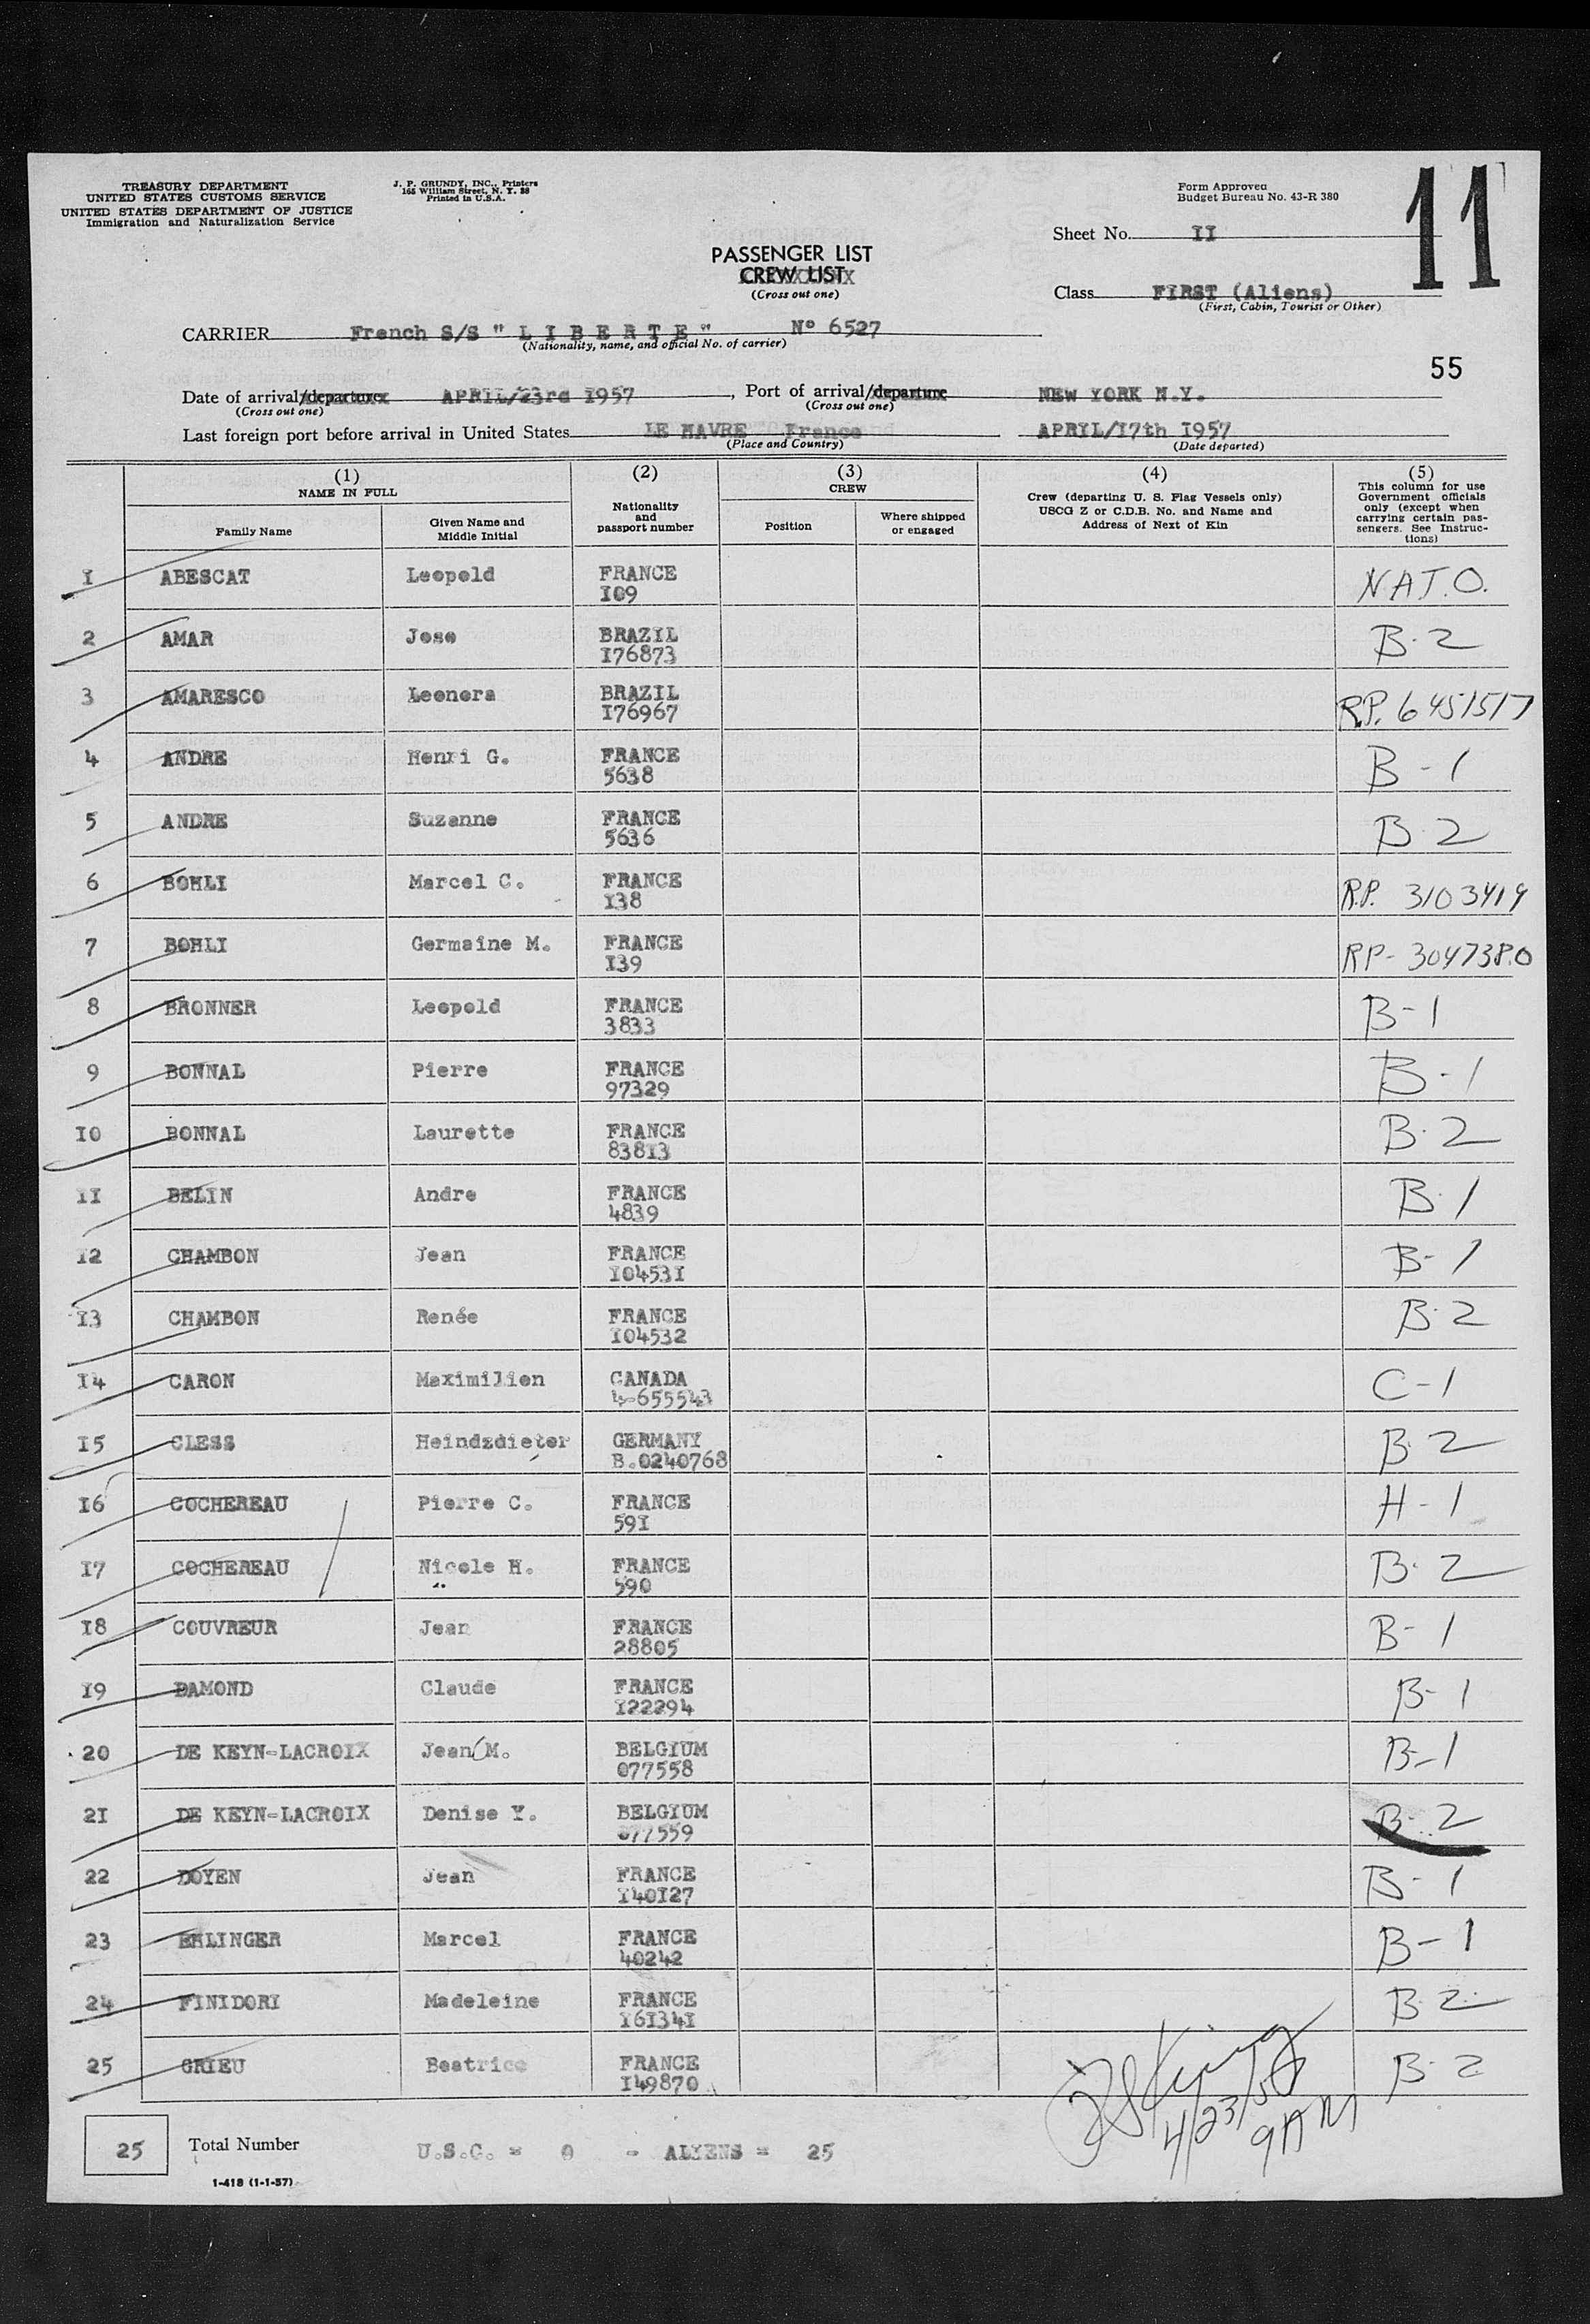 TREASURY DEPARTMENT
UNITED STATES CUSTOMS SERVICE
UNITED STATES DEPARTMENT OF JUSTICE
Immigration and Naturalization Service
J. P. GRUNDY, INC., Printers
165 William Street, N. Y. 38
Printed in U.S.A.
Form Approved
Budget Bureau No. 43-R 380
11
Sheet No. II
PASSENGER LIST
CREW LIST
(Cross out one)
Class FIRST (Aliens)
(First, Cabin, Tourist or Other)
CARRIER French S/S " L I B E R T E " N° 6527
(Nationality, name, and official No. of carrier)
55
Date of arrival/departure APRIL/23rd 1957, Port of arrival/departure NEW YORK N.Y.
(Cross out one) (Cross out one)
Last foreign port before arrival in United States LE HAVRE France APRIL/17th 1957
(Place and Country) (Date departed)
(1) (2) (3) (4) (5)
NAME IN FULL
Family Name
Given Name and Middle Initial
Nationality and passport number
CREW
Position
Where shipped or engaged
Crew (departing U. S. Flag Vessels only)
USCG Z or C.D.B. No. and Name and
Address of Next of Kin
This column for use
Government officials
only (except when
carrying certain pas-
sengers. See Instruc-
tions)
I ABESCAT Leopold FRANCE I09 N.A.T.O.
2 AMAR Jose BRAZIL I76873 B-2
3 AMARESCO Leonora BRAZIL I76967 RP. 6451517
4 ANDRE Henri G. FRANCE 5638 B-1
5 ANDRE Suzanne FRANCE 5636 B-2
6 BOHLI Marcel C. FRANCE I38 R.P. 3103419
7 BOHLI Germaine M. FRANCE I39 RP- 3047380
8 BRONNER Leopold FRANCE 3833 B-1
9 BONNAL Pierre FRANCE 97329 B-1
I0 BONNAL Laurette FRANCE 838I3 B-2
II BELIN Andre FRANCE 4839 B-1
I2 CHAMBON Jean FRANCE I0453I B-1
I3 CHAMBON Renée FRANCE I04532 B-2
I4 CARON Maximilien CANADA 4-655543 C-1
I5 CLESS Heindzdieter GERMANY B.0240768 B-2
I6 COCHEREAU Pierre C. FRANCE 59I H-1
I7 COCHEREAU Nicole H. FRANCE 590 B-2
I8 COUVREUR Jean FRANCE 28805 B-1
I9 DAMOND Claude FRANCE I22294 B-1
20 DE KEYN-LACROIX Jean M. BELGIUM 077558 B-1
2I DE KEYN-LACROIX Denise Y. BELGIUM 077559 B-2
22 DOYEN Jean FRANCE I40I27 B-1
23 EHLINGER Marcel FRANCE 40242 B-1
24 FINIDORI Madeleine FRANCE I6I34I B-2
25 GRIEU Beatrice FRANCE I49870 B-2
4/23/57
9 AM
25 Total Number U.S.C. = 0 - ALIENS = 25
1-418 (1-1-57)